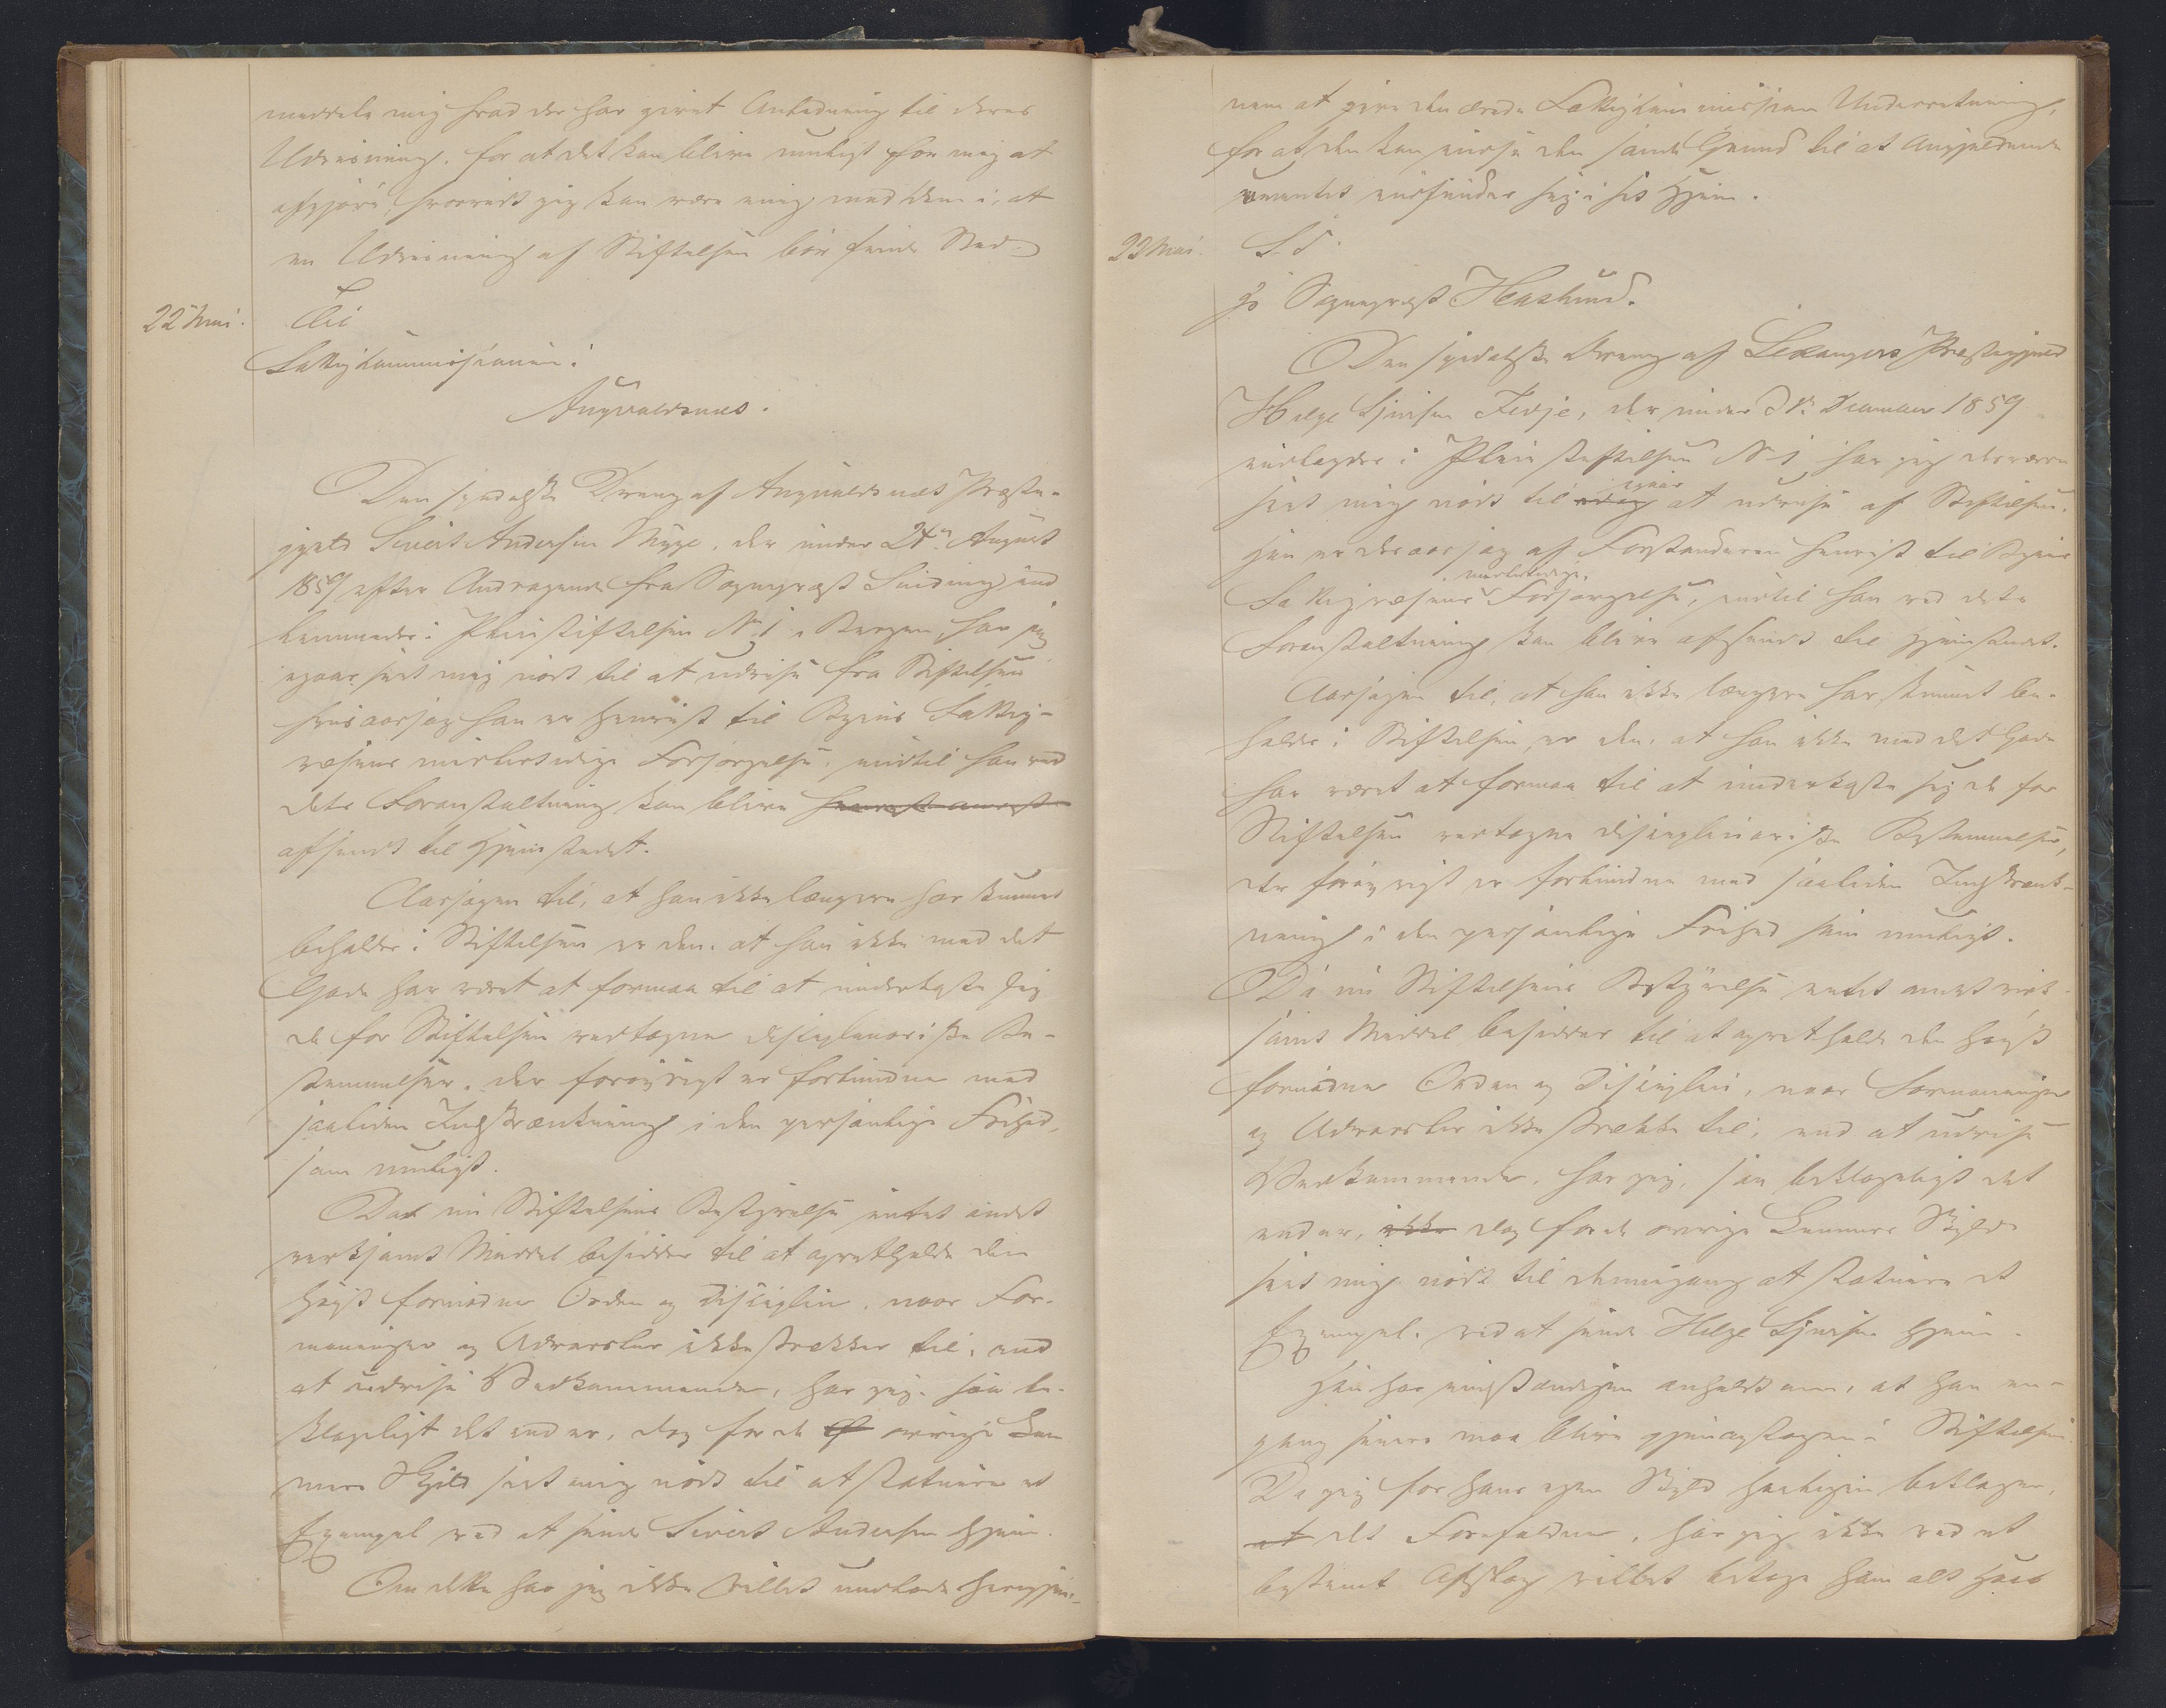 meddele mig hvad der har givet Anledning til deres
Udvisning, for at det kan blive muligt for mig at
afgjøre, hvorvidt jeg kan være enig med dem i, at
en Udvisning af Stiftelsen bør finde Sted.
22 Mai.
Til
Fattigkommissionen i
Augvaldsnæs.
Den spedalske Dreng af Augvaldsnæs Præste-
gjeld Sivert Andersen Myge, der under 24de August
1859 efter Andragende fra Sognepræst Sinding ind
kommeder i Pleiestiftelsen No 1 i Bergen, har jeg
igaar seet mig nødt til at udvise fra Stiftelsen
hvisaarsag han er henvist til Byens Fattig-
væsens midlertidige Forsørgelse, indtil han ved
dets Foranstaltning kan blive
afsendt til Hjemstedet.
Aarsagen til, at han ikke længere har kunnet
beholdes i Stiftelsen er den, at han ikke med det
Gode har været at formaa til at underkaste sig
de for Stiftelsen vedtagne disciplinariske Be-
stemmelser, der forøvrigt er forbundne med
saaliden Indskrænkning i den personlige Frihed,
som muligt.
Da nu Stiftelsens Bestyrelse intet andet
virksomt Middel besidder til at opretholde den
høist fornødne Orden og Disciplin, naar For-
maninger og Advarsler ikke strekker til, end
at udvise Vedkommende, har jeg, saa be-
klageligt det end er, dog for de øvrige Lem
mers Skyld seet mig nødt til at statuere et
Exempel ved at sende Sivert Andersen hjem.
Om dette har jeg ikke villet undlade herigjen-
nem at give den ærede Fattigkommission Underretning,
for at den kan indse den sande Grund til at Angjeldende
uventet indfinder sig i sit Hjem.
22 Mai.
S. T.
Hr Sognepræst Haslund.
Den spedalske Dreng af Lekangers Præstegjeld
Helge Sjursen Fedje, der under 31te Decemaer 1859
indlagdes i Pleiestiftelsen No 1, har jeg desværre
seet mig nødt til igaar at udvise af Stiftelsen.
Han er desaarsag af Forstanderen henvist til Byens
Fattigvæsens midlertidige Forsørgelse, indtil han ved dets
Foranstaltning kan blive afsendt til Hjemstedet.
Aarsagen til, at han ikke længere har kunnet be-
holdes i Stiftelsen, er den, at han ikke med det Gode
har været at formaa til at underkaste sig de for
Stiftelsen vedtagne disciplinariske Bestemmelser,
der forøvrigt er forbundne med saaliden Indskrænk-
ning i den personlige Frihed som muligt.
Da nu Stiftelsens Bestyrelse intet andet virk-
somt Middel besidder til at opretholde den høist
fornødne Orden og Disciplin, naar Formaninger
og Advarsler ikke strekke til, end at udvise
Vedkommende, har jeg, saa beklageligt det
end er, ikke dog for de øvrige Lemmers Skyld
seet mig nødt til dennegang at statuere et
Exempel, ved at sende Helge Sjursen hjem.
Han har indstændigen anholdt om, at han en-
gang senere maa blive gjenoptagen i Stiftelsen.
Da jeg for hans egen Skyld hjerteligen beklager,
at det Forefaldne, har jeg ikke ved et
bestemt Afslag villet betage ham alt Haab